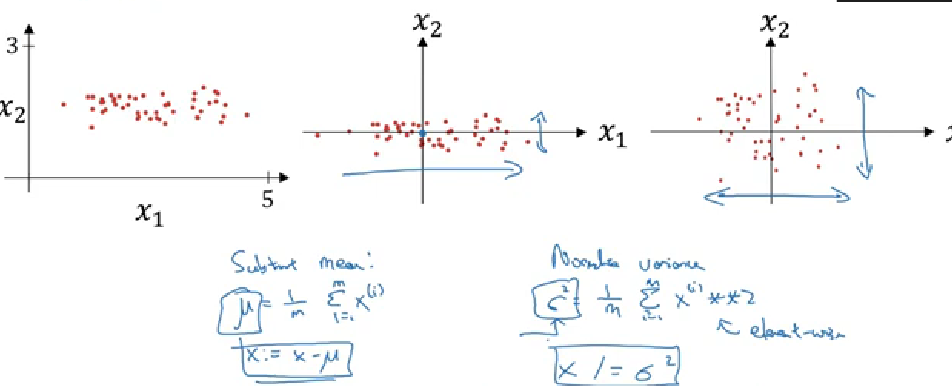 3
x₂
5
x₁
x₂
x₁
x₂
Subtract mean:
μ = 1/m Σ_{i=1}^{m} x^{(i)}
x := x - μ
Normalize variance
σ² = 1/m Σ_{i=1}^{m} x^{(i)} **2
↖ element-wise
x /= σ²